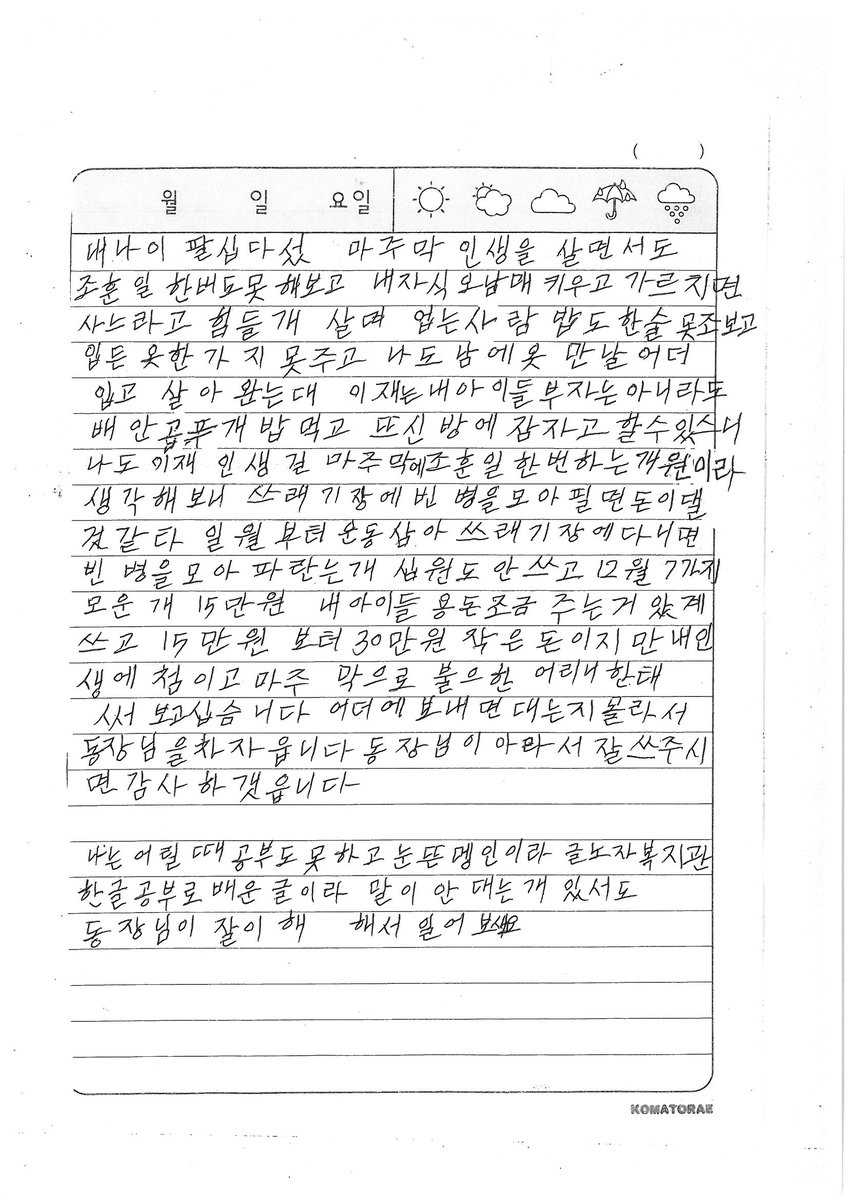 ( )
월 일 요일
내나이 팔십다섯 마주막 인생을 살면서도
조훈일 한버도못해보고 내자식오남매키우고 가르치면
사느라고 힘들개 살며 업는사람 밥도한술못조보고
입든 옷한가지못주고 나도남에옷 만날어더
입고 살아완는대 이재는내아이들부자는아니라도
배안곱푸개밥먹고 뜨신방에잠자고할수있스니
나도이재 인생길 마주막에조훈일한번하는개원이라
생각해보니 쓰래기장에빈병을모아필면돈이댈
것같타 일월부터운동삼아쓰래기장에다니면
빈병을모아파란는개십원도안쓰고12월7가지
모운개15만원 내아이들용돈조금주는거았계
쓰고 15만원 보터30만원작은돈이지만내인
생에첨이고마주막으로불으한어리니한태
써보고십슴니다 어더에보내면대는지몰라서
동장님을차자읍니다동장님이아라서잘쓰주시
면감사하갯읍니다
나는어릴때공부도못하고눈뜬멩인이라글노자복지관
한글공부로배운글이라 말이안대는개있서도
동장님이잘이해 해서일어보새요
KOMATORAE